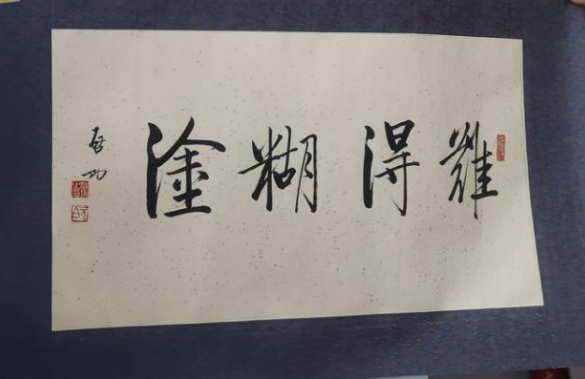 難得糊塗
啓功